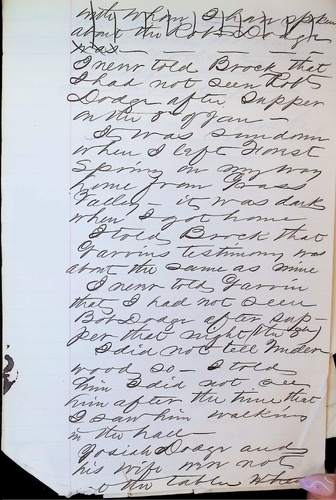 with whom I have spoken
about the Rob Dodge
was
I never told Brock that
I had not seen Rob
Dodge after supper
on the 8 of Jan —
It was sundown
when I left Forest
Spring on my way
home from Grass
Valley — it was dark
when I got home
I told Brock that
Garvins testimony was
about the same as mine
I never told Garvin
that I had not seen
Bob Dodge after sup-
per that night (the 8th)
I did not tell Under
wood so — I told
him I did not see
him after the time that
I saw him walking
in the hall
Josiah Dodge and
his wife were not
the table when